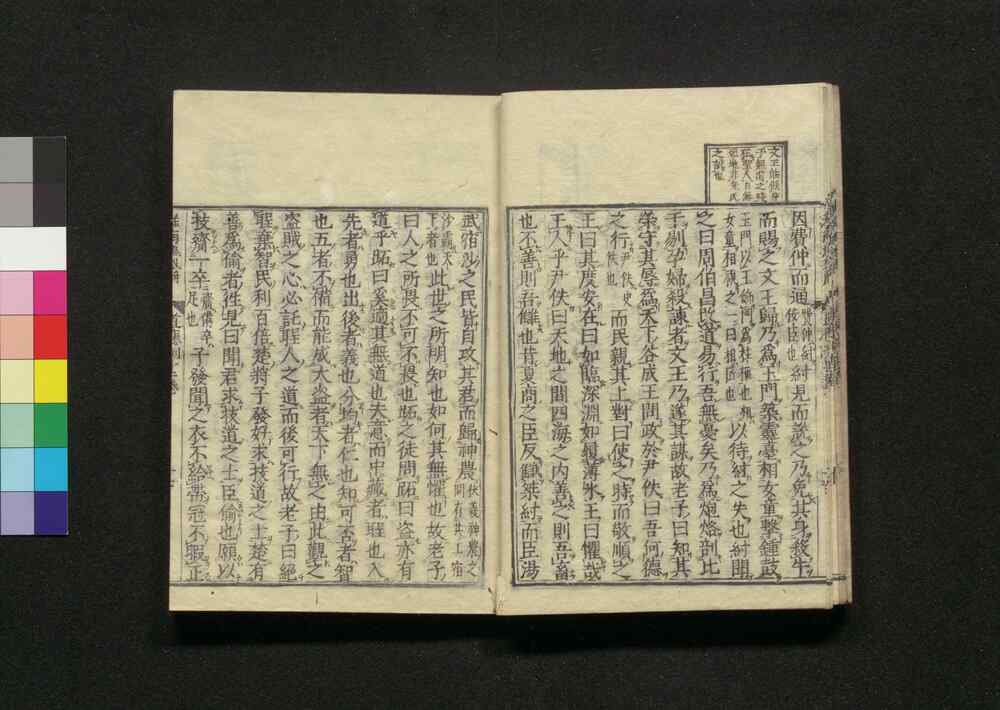 因費仲而通費仲紂佞臣也紂見而說之乃免其身殺牛
而賜之文王歸乃為玉門築靈臺相女童擊鍾鼓
玉門以玉飾門為柱樞也相女童相視之一曰相匠也以待紂之失也紂聞
之曰周伯昌改道易行吾無憂矣乃為炮烙剖比
干剔孕婦殺諫者文王乃遂其謀故老子曰知其
榮守其辱為天下谷成王問政於尹佚曰吾何德
之行尹佚史佚也而民親其上對曰使之時而敬順之
王曰其度安在曰如臨深淵如履薄氷王曰懼哉
王人乎尹佚曰天地之間四海之内善之則吾畜
也不善則吾讎也昔夏商之臣反讎桀紂而臣湯
武宿沙之民皆自攻其君而歸神農伏羲神農之間有共工宿
沙霸天下者也此世之所明知也如何其無懼也故老子
曰人之所畏不可不畏也跖之徒問跖曰盗亦有
道乎跖曰奚適其無道也夫意而中藏者聖也入
先者勇也出後者義也分均者仁也知可否者智
也五者不備而能成大盗者天下無之由此觀之
盗賊之心必託聖人之道而後可行故老子曰絶
聖棄智民利百倍楚將子發好求技道之士楚有
善為偷者往見曰聞君求技道之士臣偷也願以
技齎一卒齎備卒足也子發聞之衣不給帶冠不暇正